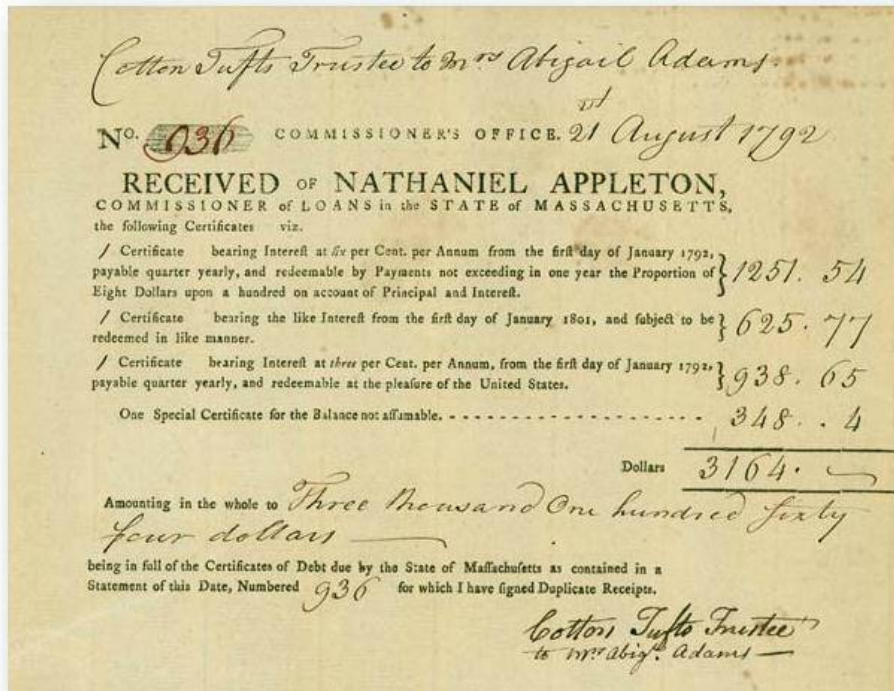 Cotton Tufts Trustee to Mrs Abigail Adams.
No. 936 COMMISSIONER'S OFFICE. 21st August 1792
RECEIVED OF NATHANIEL APPLETON,
COMMISSIONER of LOANS in the STATE of MASSACHUSETTS,
the following Certificates viz.
/ Certificate bearing Interest at six per Cent. per Annum from the first day of January 1792,
payable quarter yearly, and redeemable by Payments not exceeding in one year the Proportion of } 1251. 54
Eight Dollars upon a hundred on account of Principal and Interest.
/ Certificate bearing the like Interest from the first day of January 1801, and subject to be } 625. 77
redeemed in like manner.
/ Certificate bearing Interest at three per Cent. per Annum, from the first day of January 1792, } 938. 65
payable quarter yearly, and redeemable at the pleasure of the United States.
One Special Certificate for the Balance not assumable. - - - - - - - - - - - - - - - - - - 348. . 4
Dollars 3164. —
Amounting in the whole to Three thousand One hundred sixty
four dollars —
being in full of the Certificates of Debt due by the State of Massachusetts as contained in a
Statement of this Date, Numbered 936 for which I have signed Duplicate Receipts.
Cotton Tufts Trustee
to Mrs Abigl. Adams —